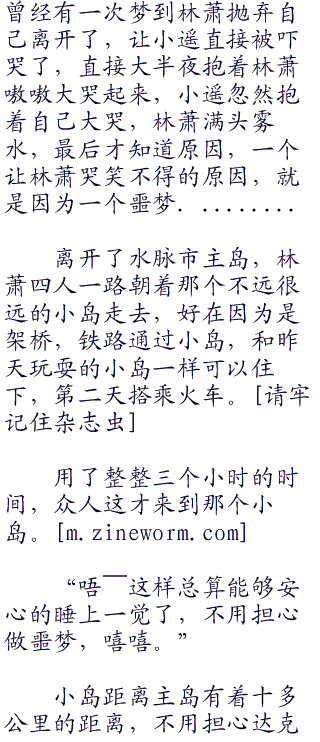 曾经有一次梦到林萧抛弃自
己离开了，让小遥直接被吓
哭了，直接大半夜抱着林萧
嗷嗷大哭起来，小遥忽然抱
着自己大哭，林萧满头雾
水，最后才知道原因，一个
让林萧哭笑不得的原因，就
是因为一个噩梦．........
离开了水脉市主岛，林
萧四人一路朝着那个不远很
远的小岛走去，好在因为是
架桥，铁路通过小岛，和昨
天玩耍的小岛一样可以住
下，第二天搭乘火车。[请牢
记住杂志虫]
用了整整三个小时的时
间，众人这才来到那个小
岛。[m.zineworm.com]
“唔￣这样总算能够安
心的睡上一觉了，不用担心
做噩梦，嘻嘻。”
小岛距离主岛有着十多
公里的距离，不用担心达克